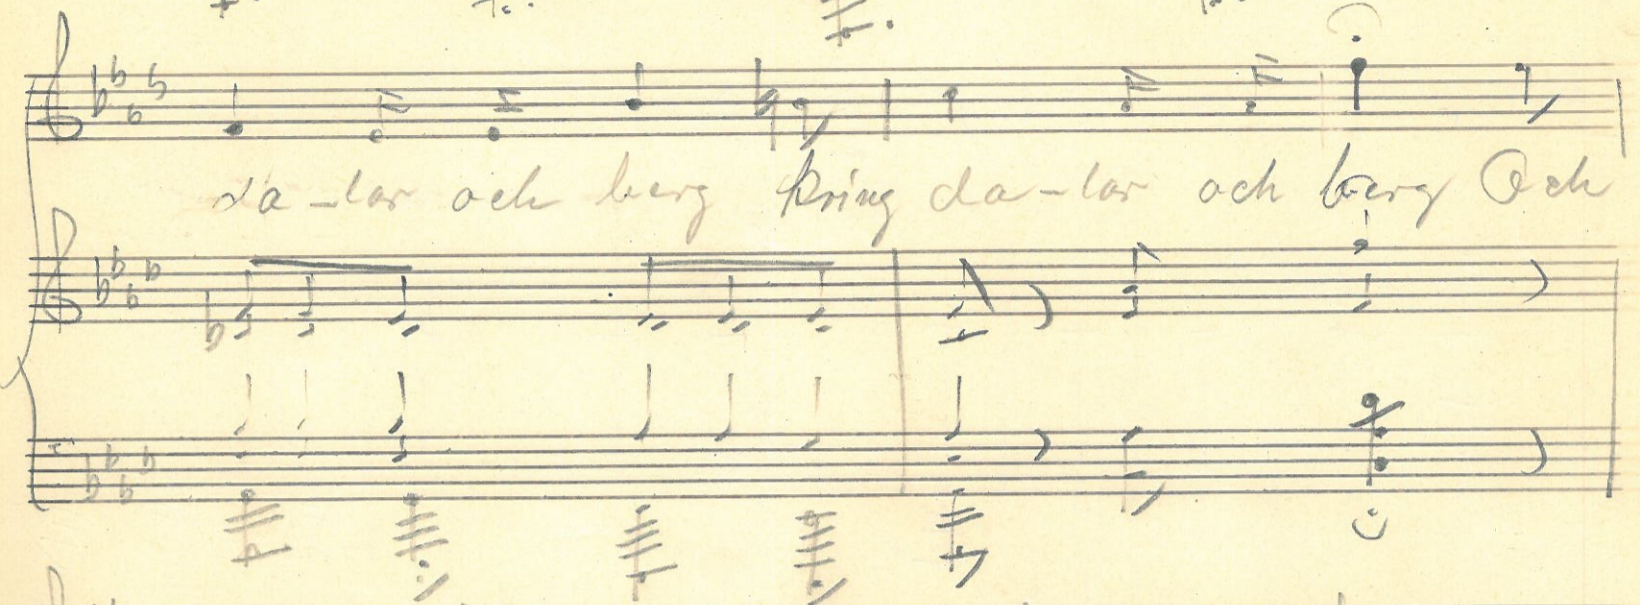 da-lar och berg kring da-lar och berg Och